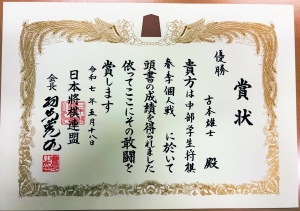 賞状
優勝
古本雄士 殿
貴方は中部学生将棋
春季個人戦 に於いて
頭書の成績を得られました
依ってここにその敢闘を
賞します
令和七年五月十八日
日本将棋連盟
会長 羽生善治